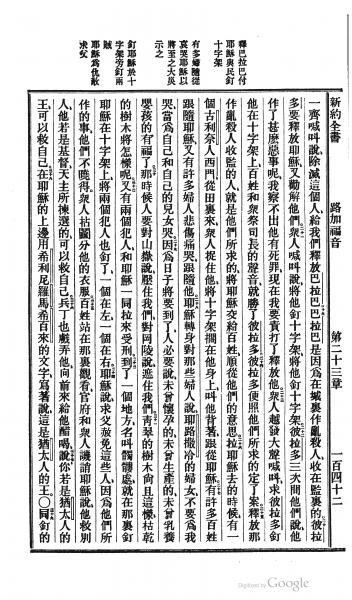 新約全書 路加福音 第二十三章 一百四十二
釋巴拉巴付
耶穌與民釘
十字架
有多婦隨從
哀哭耶穌以
將至之大災
示之
釘耶穌於十
字架旁釘兩
賊
耶穌爲仇敵
求父
一齊喊叫說除滅這個人給我們釋放巴拉巴巴拉巴是因爲在城裏作亂殺人收在監裏的彼拉
多要釋放耶穌又勸解他們衆人喊叫說將他釘十字架將他釘十字架彼拉多三次問他們說他
作了甚麽惡事呢我察不出他有死罪現在我要責打了釋放他衆人越發大聲喊叫求彼拉多將
他釘在十字架上百姓和衆祭司長的聲音就勝了彼拉多彼拉多便照他們所求的定了案釋放那
作亂殺人收監的人就是他們所求的將耶穌交給百姓順從他們的意思拉耶穌去的時候有一
個古利奈人西門從田裏來衆人捉住他將十字架擱在他身上叫他背着跟從耶穌有許多百姓
跟隨耶穌又有許多婦人悲傷痛哭跟隨他耶穌轉身對那些婦人說耶路撒冷的婦女不要爲我
哭當爲自己和自己的兒女哭因爲日子將要到了人必要說未曾懷孕的未曾生產的未曾乳養
嬰孩的有福了那時候人要對山嶽說壓住我們對岡陵說遮住我們靑翠的樹木尚且這樣枯乾
的樹木將怎樣呢又有兩個犯人和耶穌一同拉來受刑到了一個地方名叫髑髏處就在那裏釘
耶穌在十字架上將兩個犯人也釘了一個在左一個在右耶穌說求父赦免這些人因爲他們所
作的事他們不曉得衆人拈鬮分他的衣服百姓站在那裏觀看官府和衆人譏誚耶穌說他救別
人他若是基督天主所揀選的可以救自己兵丁也戲弄他向前來給他醋喝說你若是猶太人的
王可以救自己在耶穌的上邊用希利尼羅馬希百來的文字寫著說這是猶太人的王○同釘的
Digitized by Google